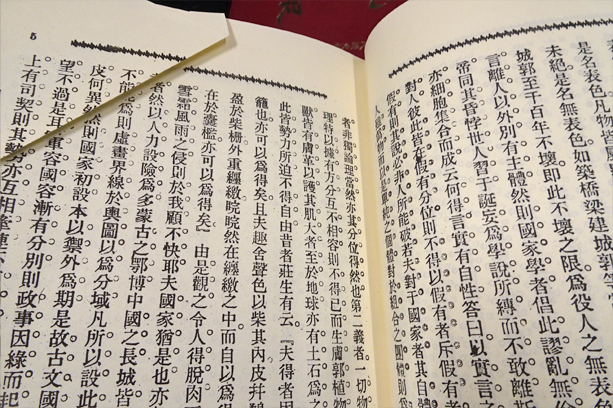 是名表色凡物
未絶是名無表色如築橋梁建城郭
城郭至千百年不壞即此不壞之限為役人之無表色
言離人以外別有主體然則國家學者倡此謬亂無倫
帝同其昏悖世人習于誕妄為學說所縛而不敢離
亦細胞集合而成云何得言實有自性答曰以實言之
對人彼此皆在假有分位則不得以假有者斥假有者
位則其說必非人所能破若夫對于國家者其自體
之個體對於組合之團體則為
者非獨論理當然亦其分位得然也第二義者一切物
理特以據有方分互不相容則不得已而生膚郭植物
獸皆有膚革以護其肌大者至於地球亦有土石為之
此皆勢力所迫不得自由昔者莊生有云『夫得者困
籠也亦可以為得矣且夫趣舍聲色以柴其內皮弁鷸
盈於柴柵外重纆繳睆睆然在纆繳之中而自以為得
在於囊檻亦可以為得矣』由是觀之令人得脫肉
雪霜風雨之侵則於我顧不快耶夫國家猶是也亦
者然以人力設險為多蒙古之鄂博中國之長城皆
不能為則虛畫界線於輿圖以為分域凡所以設此
皮何異然則國家初設本以禦外為期是故古文國
望不過是耳軍容國容漸有分別則政事因緣而起
上有司契則其勢亦互相牽連不
5